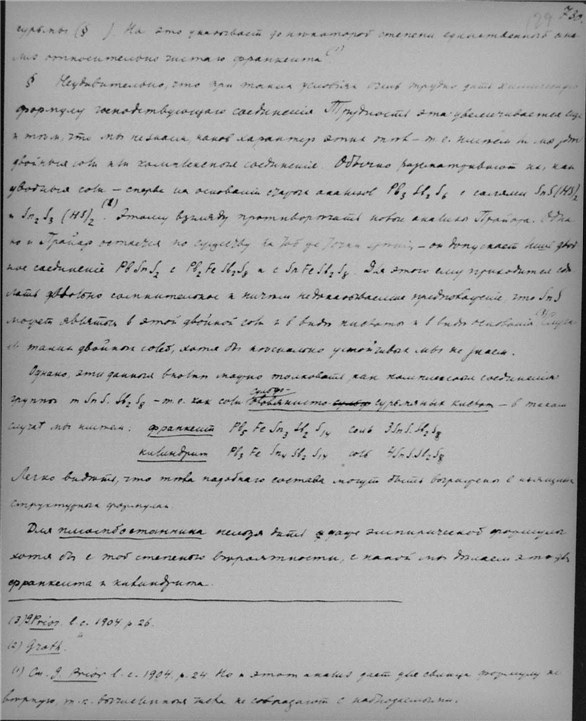 сурьмы (§ ). На это указывает до некоторой степени единственный ана-
лиз относительно чистого франкеита (1)
§ Неудивительно, что при таких условиях очень трудно дать химическую
формулу господствующего соединения. Трудность эта увеличивается еще
и тем, что мы не знаем, каков характер этих тел – т.е. имеем ли мы
двойные соли или комплексные соединения. Обычно рассматривают их, как
двойные соли – сперва на основании старых анализов Pb3 Sb2 S6 с солями SnS(HS)2
и Sn2 S3 (HS)2 (2). Этому взгляду противоречат новые анализы Прайора. Одна-
ко и Прайор остается по существу на той же точке зрения, – он допускает двой-
ное соединение PbSnS2 с Pb2FeSb2S8 и с SnFeSb2S8. Для этого ему приходится сде-
лать довольно сомнительное и ничем недоказываемое предположение, что SnS
может являться в этой двойной соли и в виде кислоты и в виде основания (3).
таких двойных солей, хотя бы мы не знаем.
Однако, эти данные вполне можно толковать как комплексные соединения
группы m SnS. Sb2 S8 – т.е. как соли сурьмяных кислот – в таком
случае мы имеем: франкеит Pb5 Fe Sn3 Sb2 S14 соль 3SnS.Sb2S8
килиндрит Pb3 Fe Sn4 Sb2 S14 соль 4SnS.Sb2S8
Легко видеть, что тела подобного состава могут быть выражены в
структурных формулах.
Для плюмбостаннита нельзя дать даже эмпирической формулы
хотя бы с той степенью вероятности, с какой мы делаем это для
франкеита и килиндрита.
(3) G. Prior. l. c. 1904 p. 26.
(2) Groth.
(1) См. G. Prior l. c. 1904. p. 24. Но и этот анализ дает для свинца формулу не
верную, т.к. вычисленные числа не совпадают с наблюдаемыми.